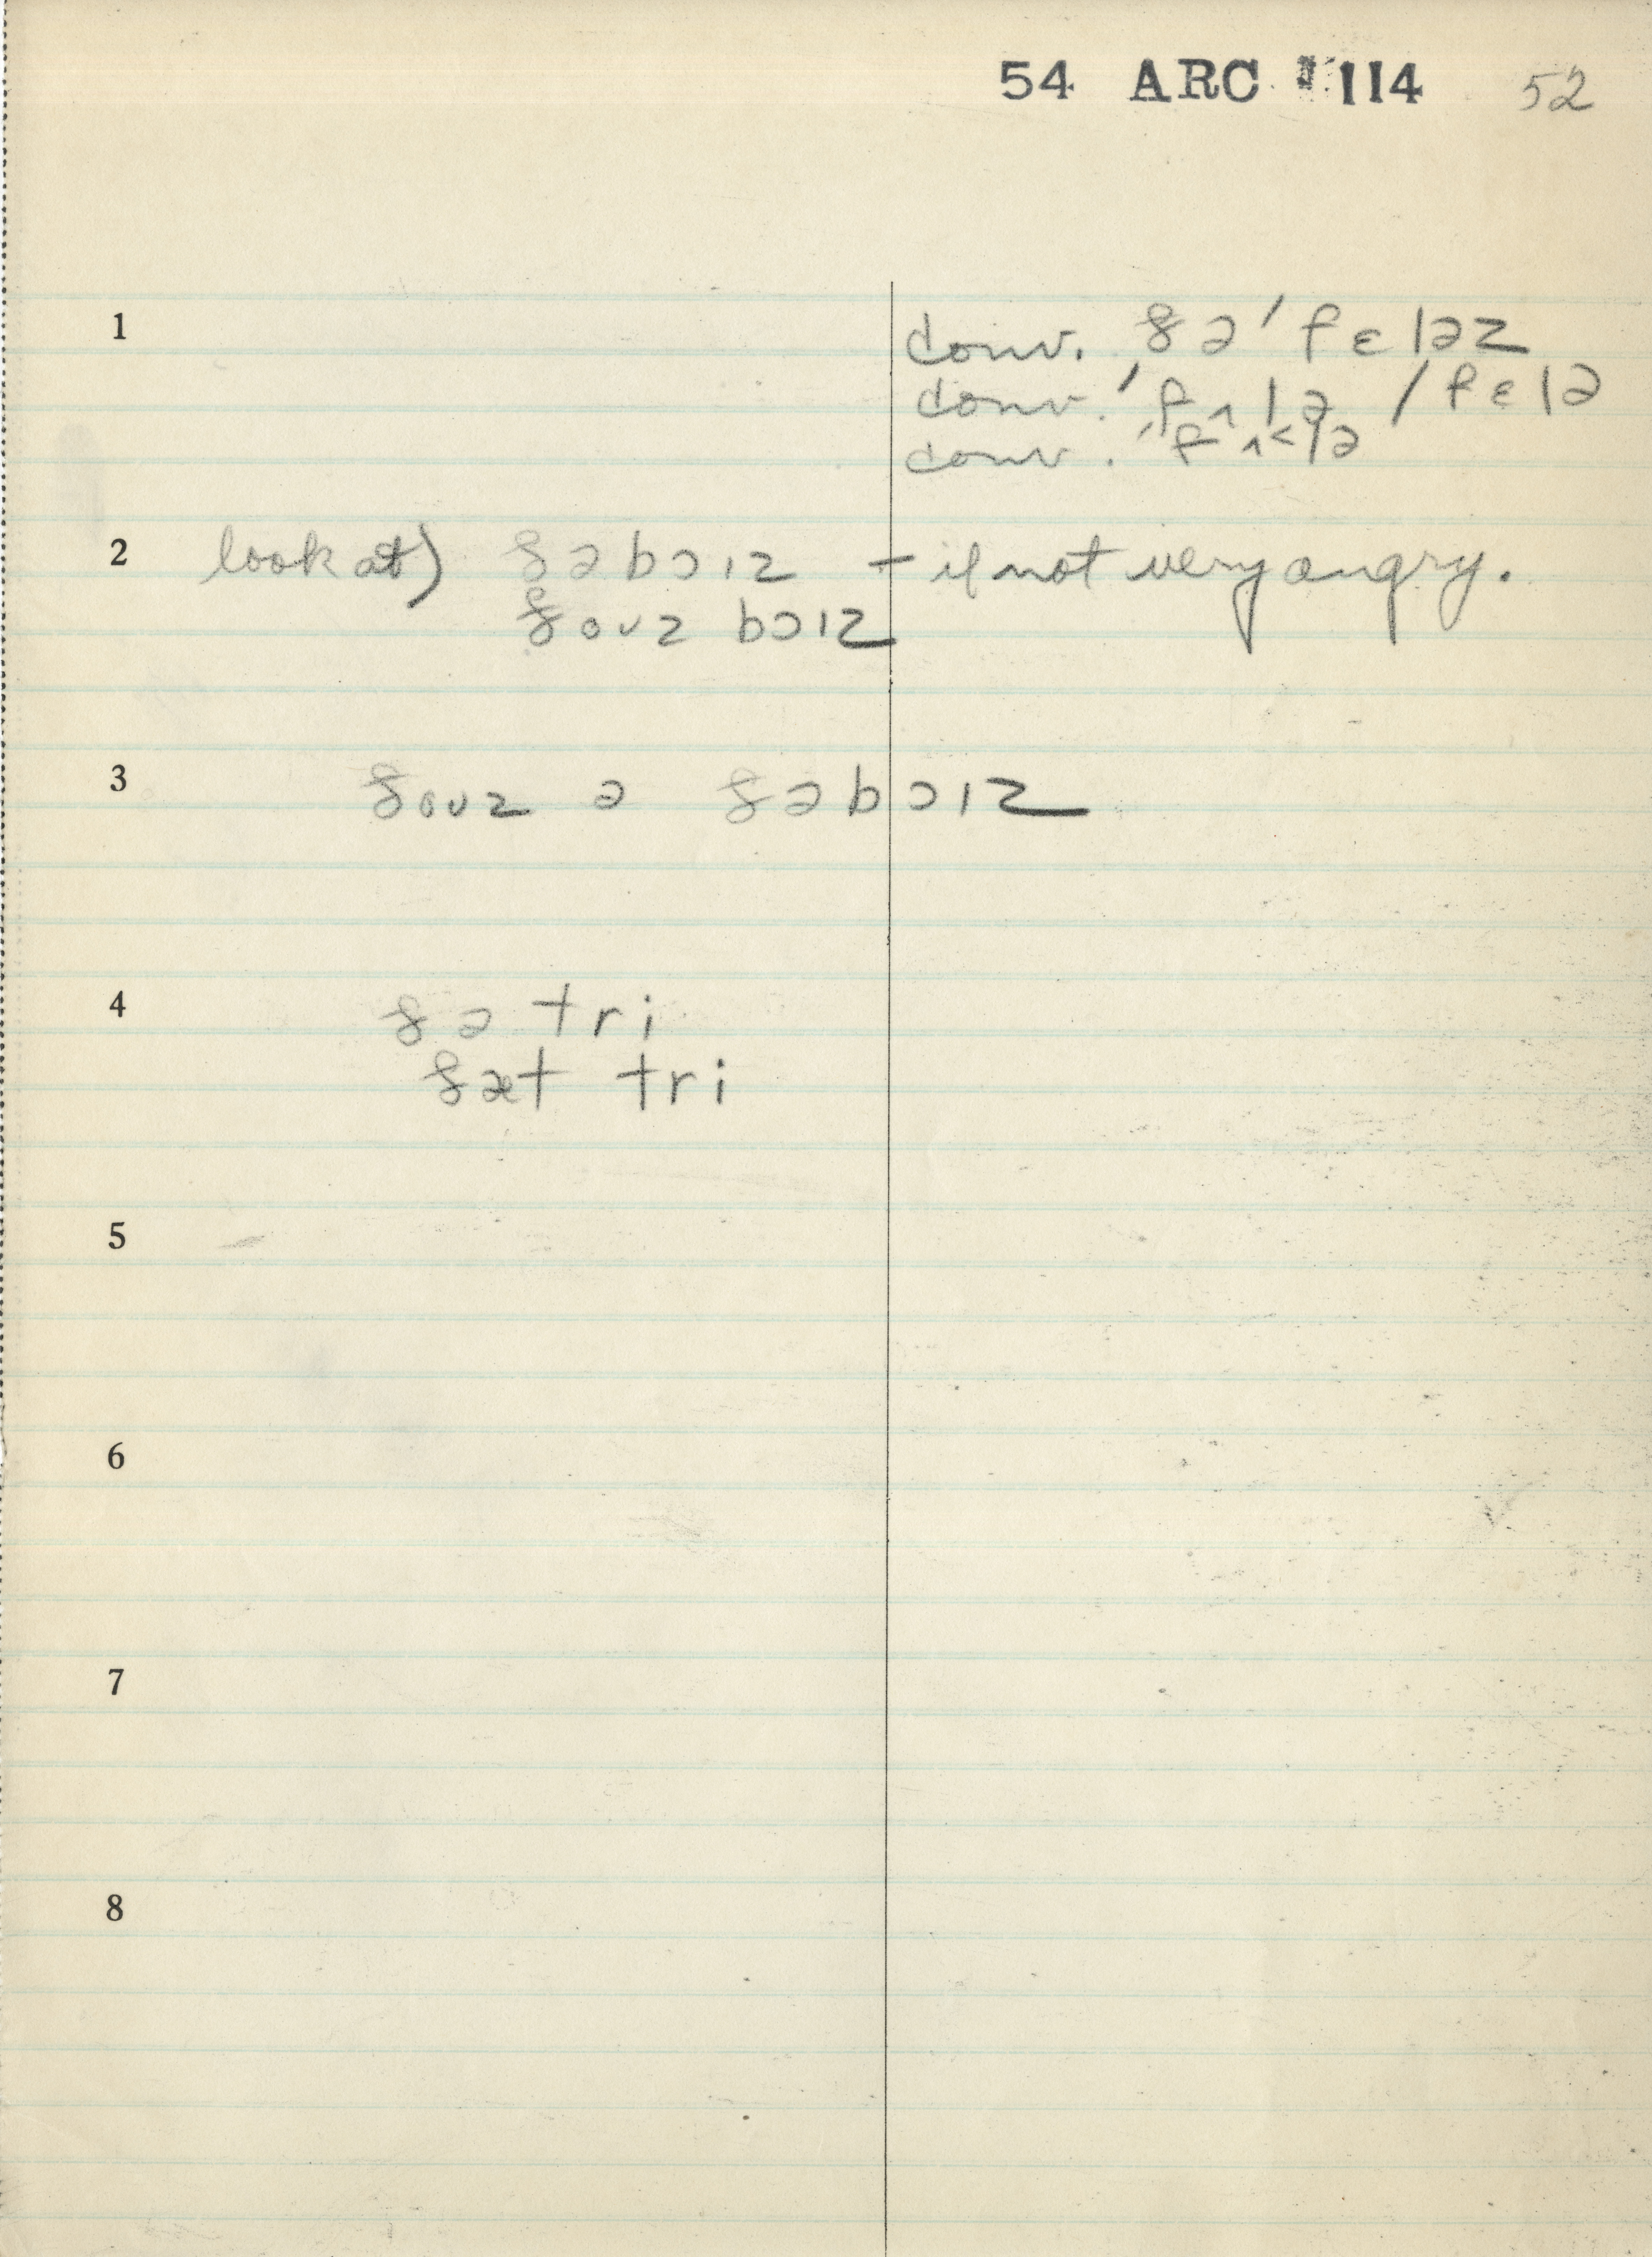 54 ARC 114 52
1 conv. ðə ' fɛləz
conv. ' fʌlə / fɛlə
conv. ' fʌ<lə
2 look at) ðəbɔɪz – if not very angry.
ðoʊz bɔɪz
3 ðoʊz ə ðəbɔɪz
4 ðə tri
ðæt tri
5
6
7
8